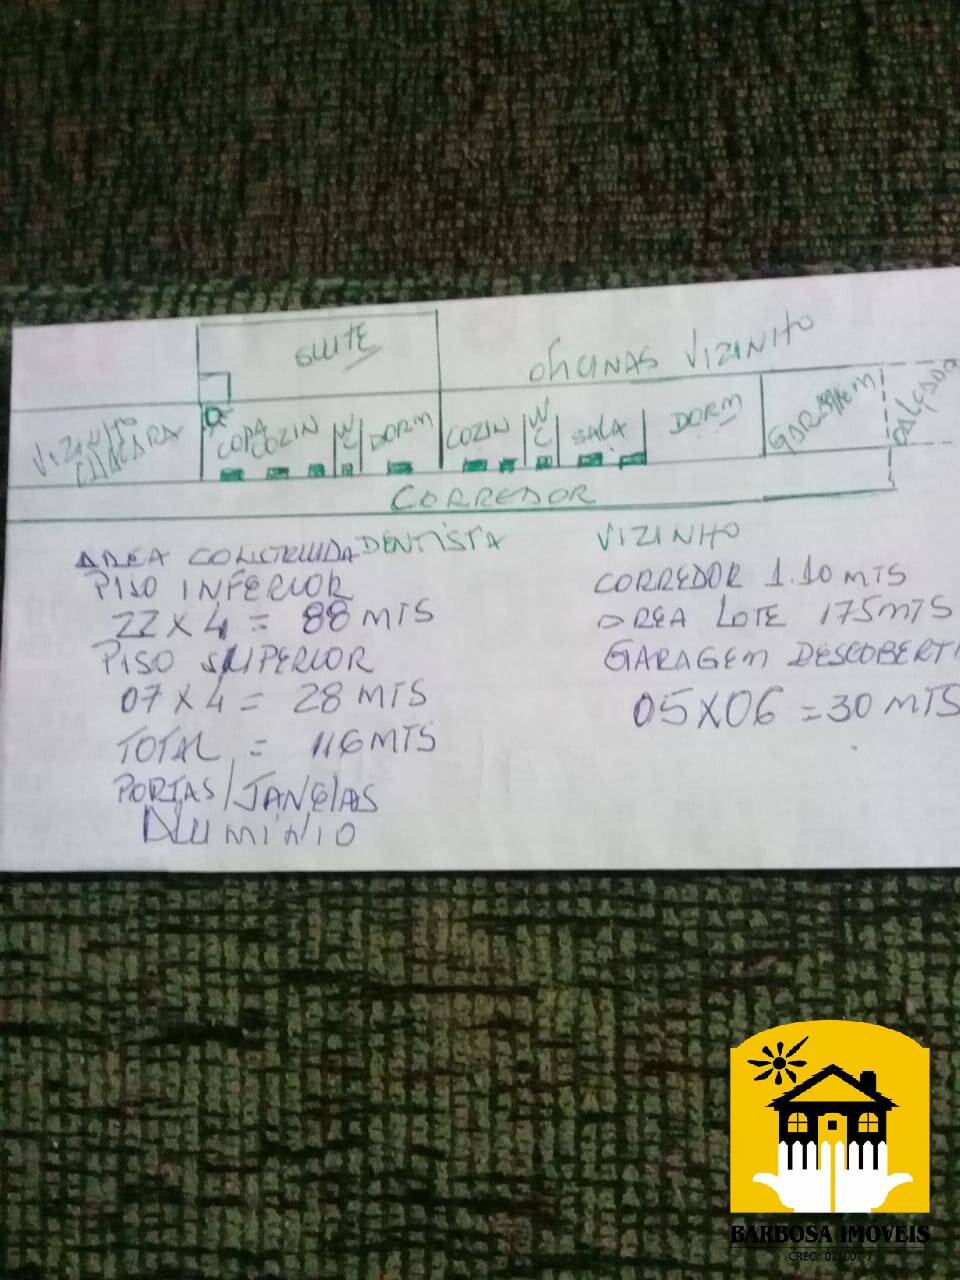 SUITE
OFICINAS VIZINHO
VIZINHO CHACARA
COPA COZIN
WC
DORM
COZIN
WC
SALA
DORM
GARAGEM
CALÇADA
CORREDOR
DENTISTA
VIZINHO
AREA CONSTRUIDA
PISO INFERIOR
22 X 4 = 88 MTS
PISO SUPERIOR
07 X 4 = 28 MTS
TOTAL = 116 MTS
PORTAS/JANELAS
ALUMINIO
CORREDOR 1.10 MTS
AREA LOTE 175 MTS
GARAGEM DESCOBERT
05X06 = 30 MTS
BARBOSA IMÓVEIS